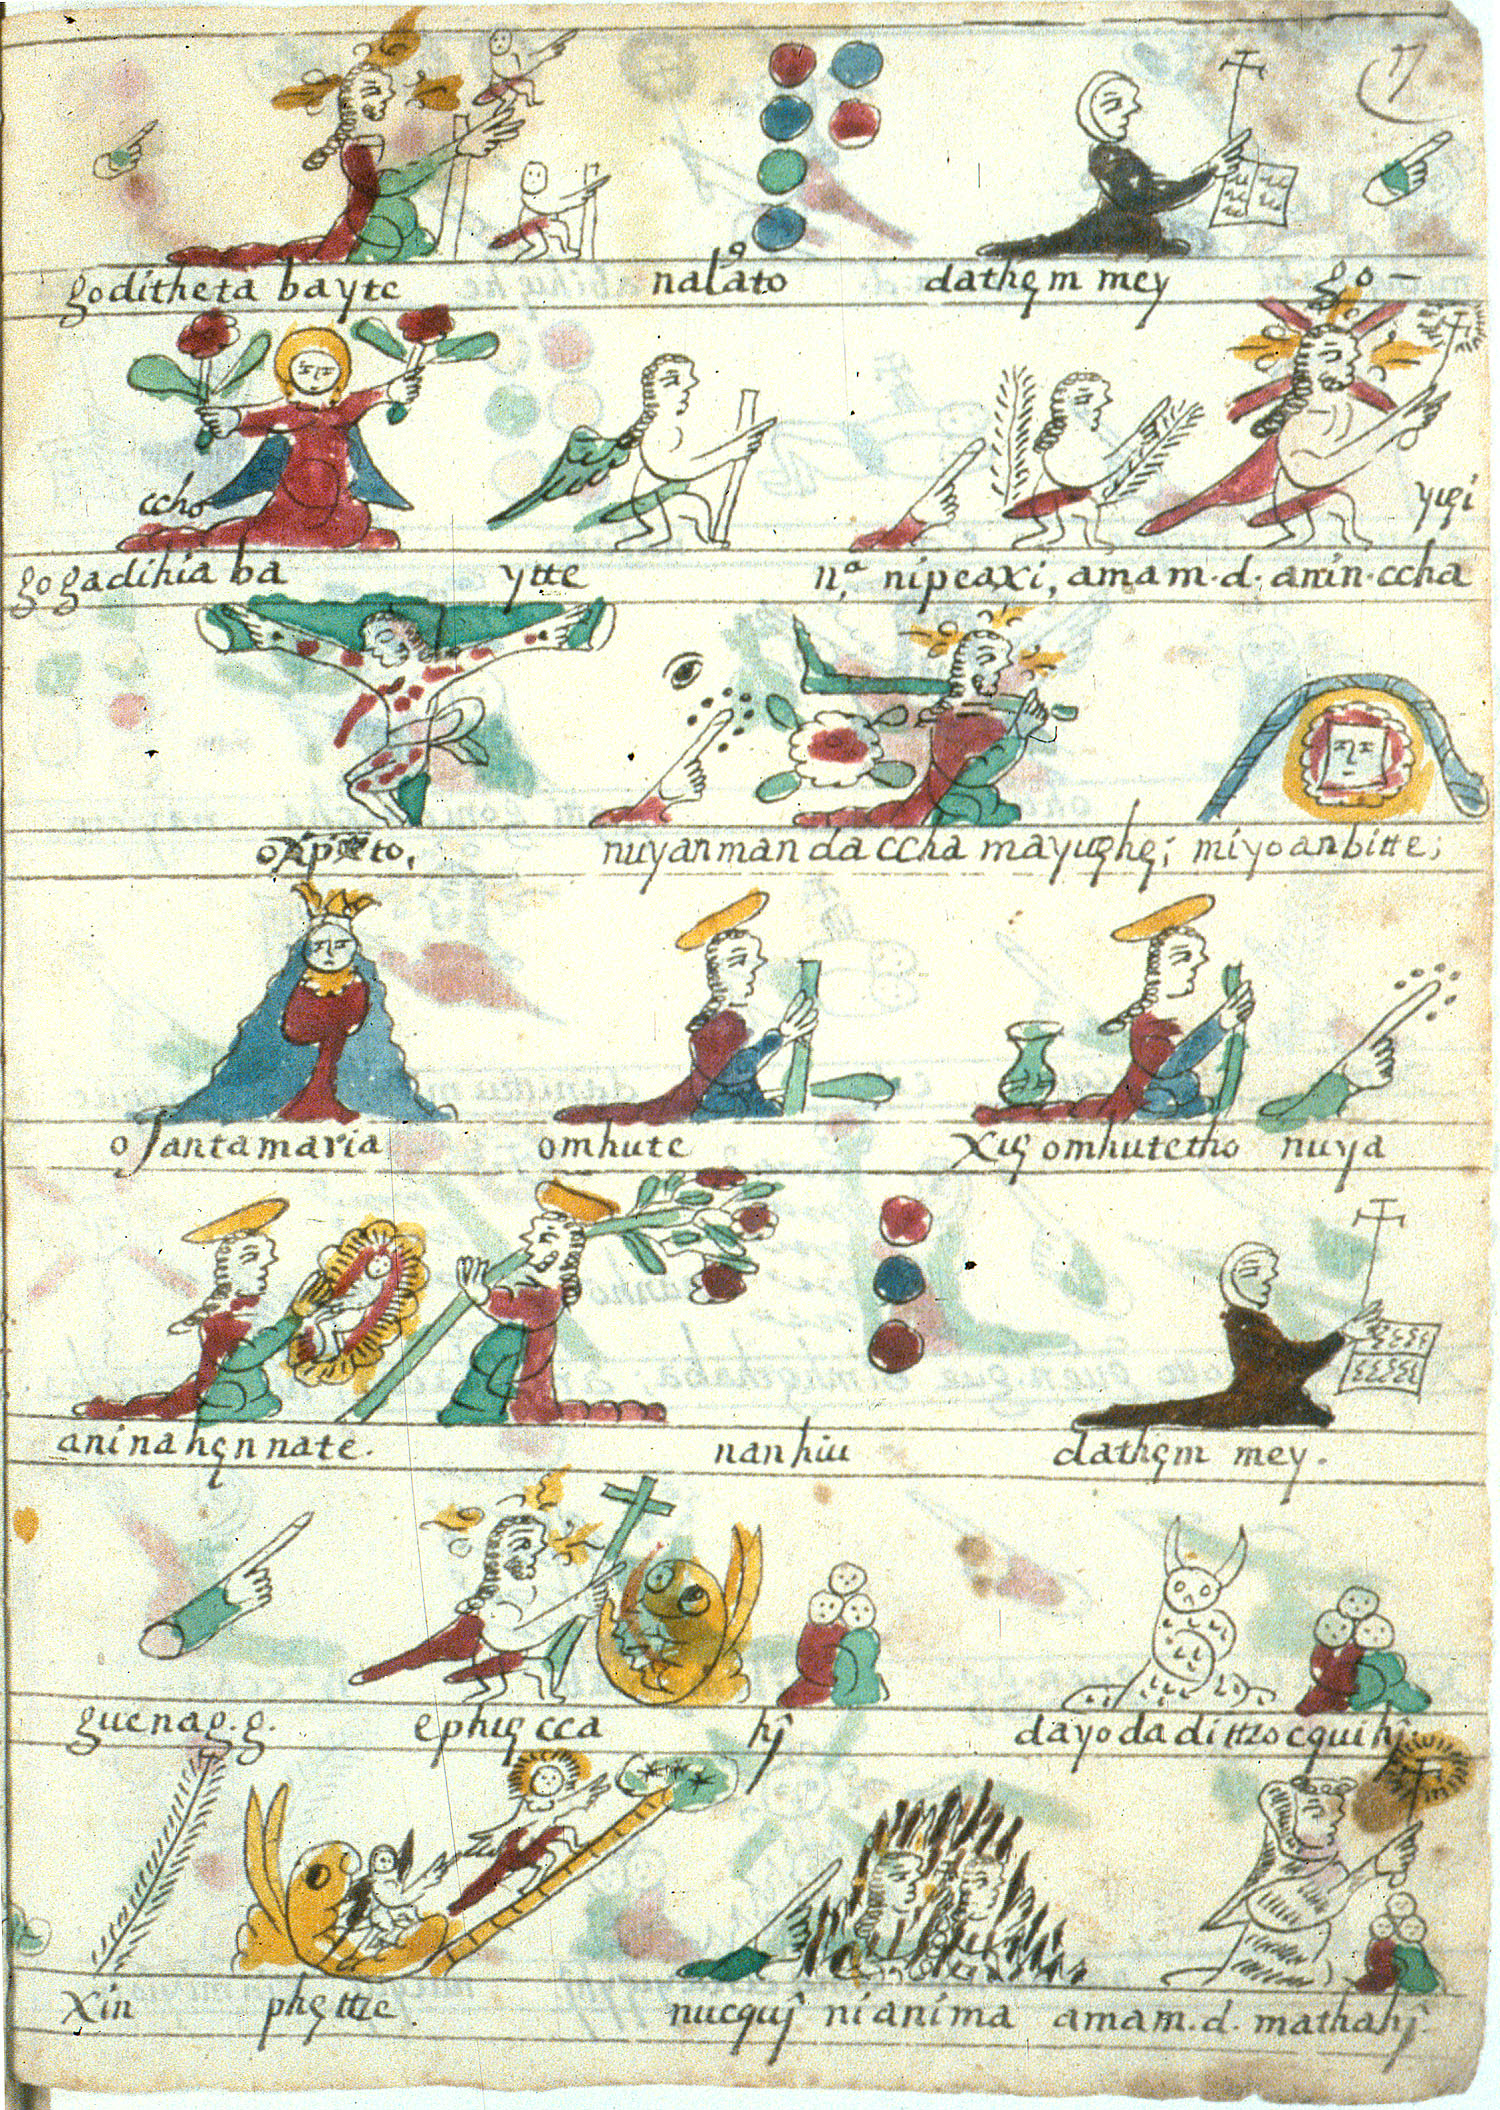 7
goditheta bayte nalato dathęm mey go-
ccho yęi
gogadihia ba ytte nª, nipeaxi, amam.d. anin.ccha
nuyanman da ccha mayuęhę; miyoanbitte;
o santa maria omhute xię omhutetho nuya
aninahęnnate. nanhiu dathęm mey.
guenag.g. ephię cca hĵ dayo da dittzocqui hĵ.
xin phęttze. nucquĵ nianima amam.d. mathahĵ.